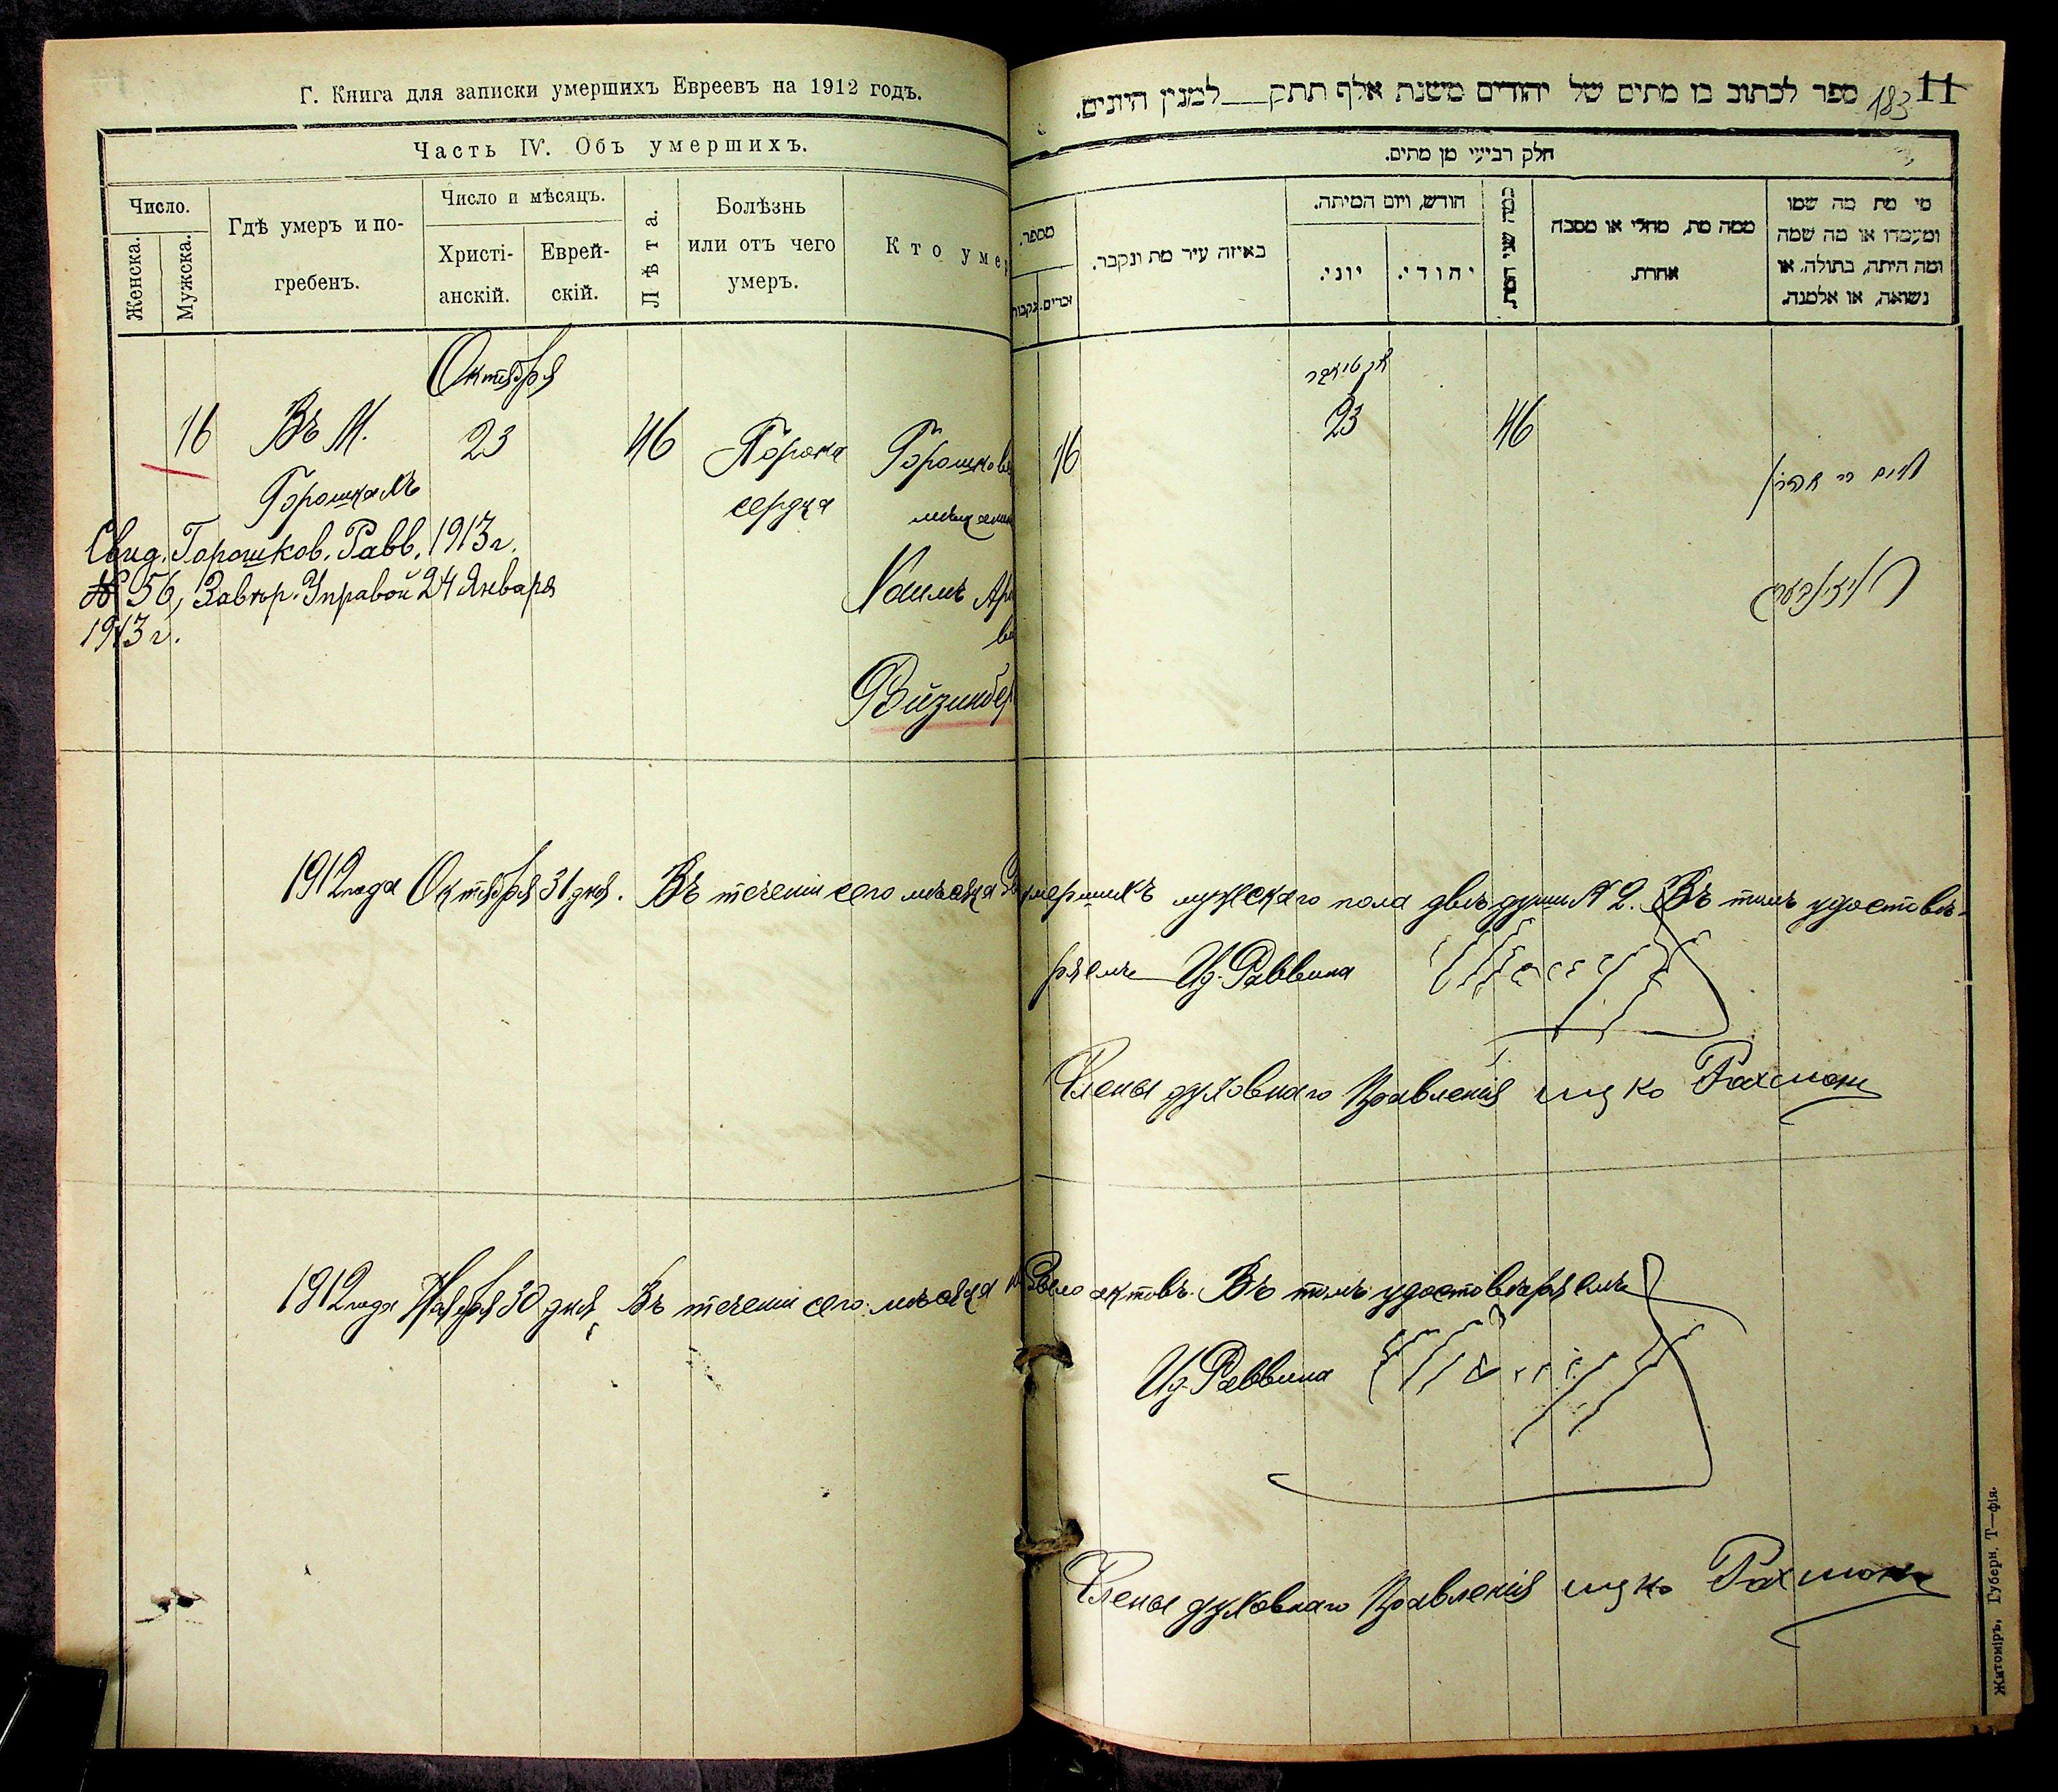 Г. Книга для записки умершихъ Евреевъ на 1912 годъ.
Часть IV. Объ умершихъ.
Число.
Женска.
Мужска.
Гдѣ умеръ и по-
гребенъ.
Число и мѣсяцъ.
Христі-
анскій.
Еврей-
скій.
Лѣта.
Болѣзнь
или отъ чего
умеръ.
Кто умер
Октября
16 Въ М. 23 46 Порока Горошковс
Горошкахъ сердца мѣщанин
Свид. Горошков. Равв. 1913 г.
№ 56, Завѣр. Управой 24 Января
1913 г.
Хаимъ Ар
Вйзинбер
183 11
ספר לכתוב בו מתים של יהודים משנת אלף תתק___למנין היונים.
חלק רביעי מן מתים.
מי מת מה שמו
ומעמדו או מה שמה
ומה היתה, בתולה, או
נשואה, או אלמנה.
ממה מת, מחלי או מסבה
אחרת.
כמה שני המת
חודש, ויום המיתה.
יהודי.
יוני.
באיזה עיר מת ונקבר.
מספר.
זכרים.
נקבות
אקטיאבר
16 23 46
חיים
1912 года Октября 31 дня. Въ теченіи сего мѣсяца умершихъ мужескаго пола двѣ души № 2. Въ томъ удостовѣ-
ряемъ Ид. Раввина
Члены духовнаго Правленія ицко Рахман
1912 года Ноября 30 дня, Въ теченіи сего мѣсяца не было актовъ. Въ томъ удостовѣряемъ
Ид. Раввина
Члены духовнаго Правленія ицко Рахман
Житоміръ, Губерн. Т—фія.